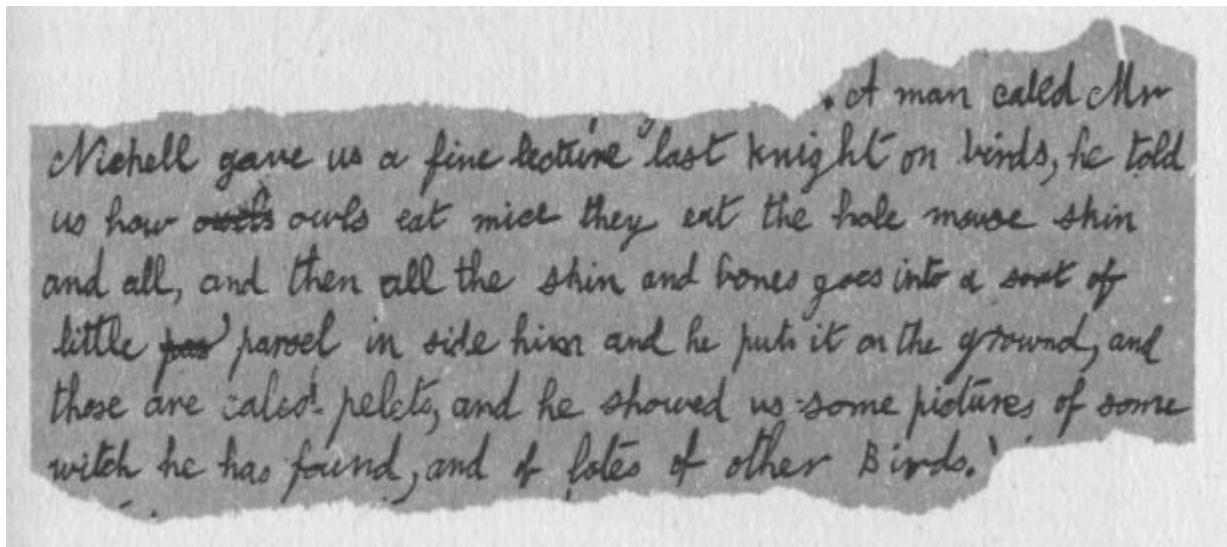 A man caled Mr
Nichell gave us a fine lecture last knight on birds, he told
us how owls owls eat mice they eat the hole mouse skin
and all, and then all the skin and bones goes into a sort of
little par parcel in side him and he puts it on the ground, and
those are caled pelets, and he showed us some pictures of some
witch he has found, and of lotes of other Birds.'